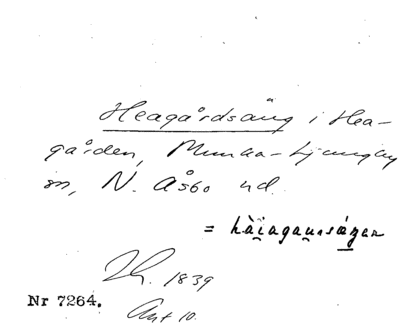 Heagårdsäng i Hea-
gården, Munka-Ljungby
sn, N. Åsbo hd.
=
Lh. 1839
Nr 7264.
Akt 10.